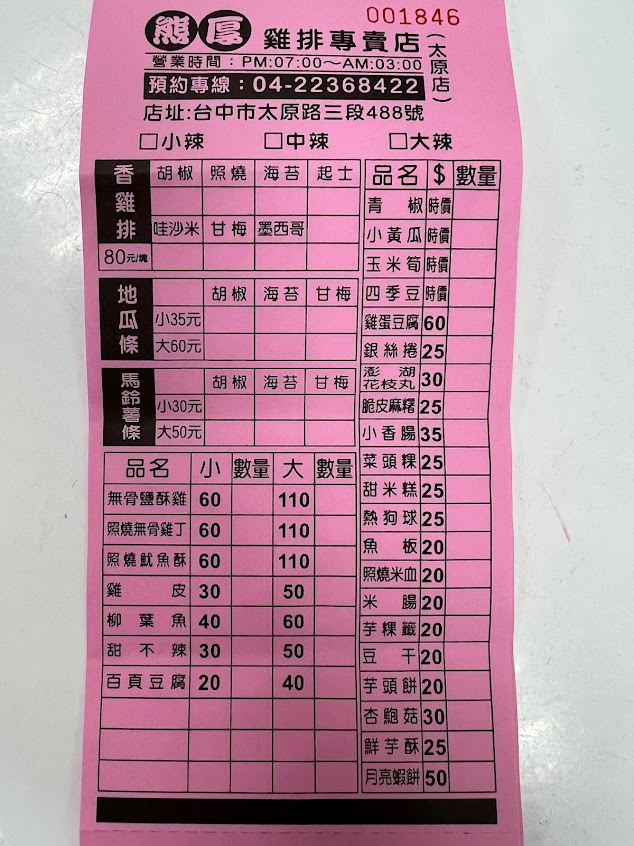 001846
熊厚 雞排專賣店(太原店)
營業時間：PM:07:00～AM:03:00
預約專線：04-22368422
店址:台中市太原路三段488號
□小辣 □中辣 □大辣
香雞排 胡椒 照燒 海苔 起士
哇沙米 甘梅 墨西哥
80元/塊
地瓜條 胡椒 海苔 甘梅
小35元
大60元
馬鈴薯條 胡椒 海苔 甘梅
小30元
大50元
品名 小 數量 大 數量
無骨鹽酥雞 60 110
照燒無骨雞丁 60 110
照燒魷魚酥 60 110
雞皮 30 50
柳葉魚 40 60
甜不辣 30 50
百頁豆腐 20 40
品名 $ 數量
青椒 時價
小黃瓜 時價
玉米筍 時價
四季豆 時價
雞蛋豆腐 60
銀絲捲 25
澎湖花枝丸 30
脆皮麻糬 25
小香腸 35
菜頭粿 25
甜米糕 25
熱狗球 25
魚板 20
照燒米血 20
米腸 20
芋粿籤 20
豆干 20
芋頭餅 20
杏鮑菇 30
鮮芋酥 25
月亮蝦餅 50